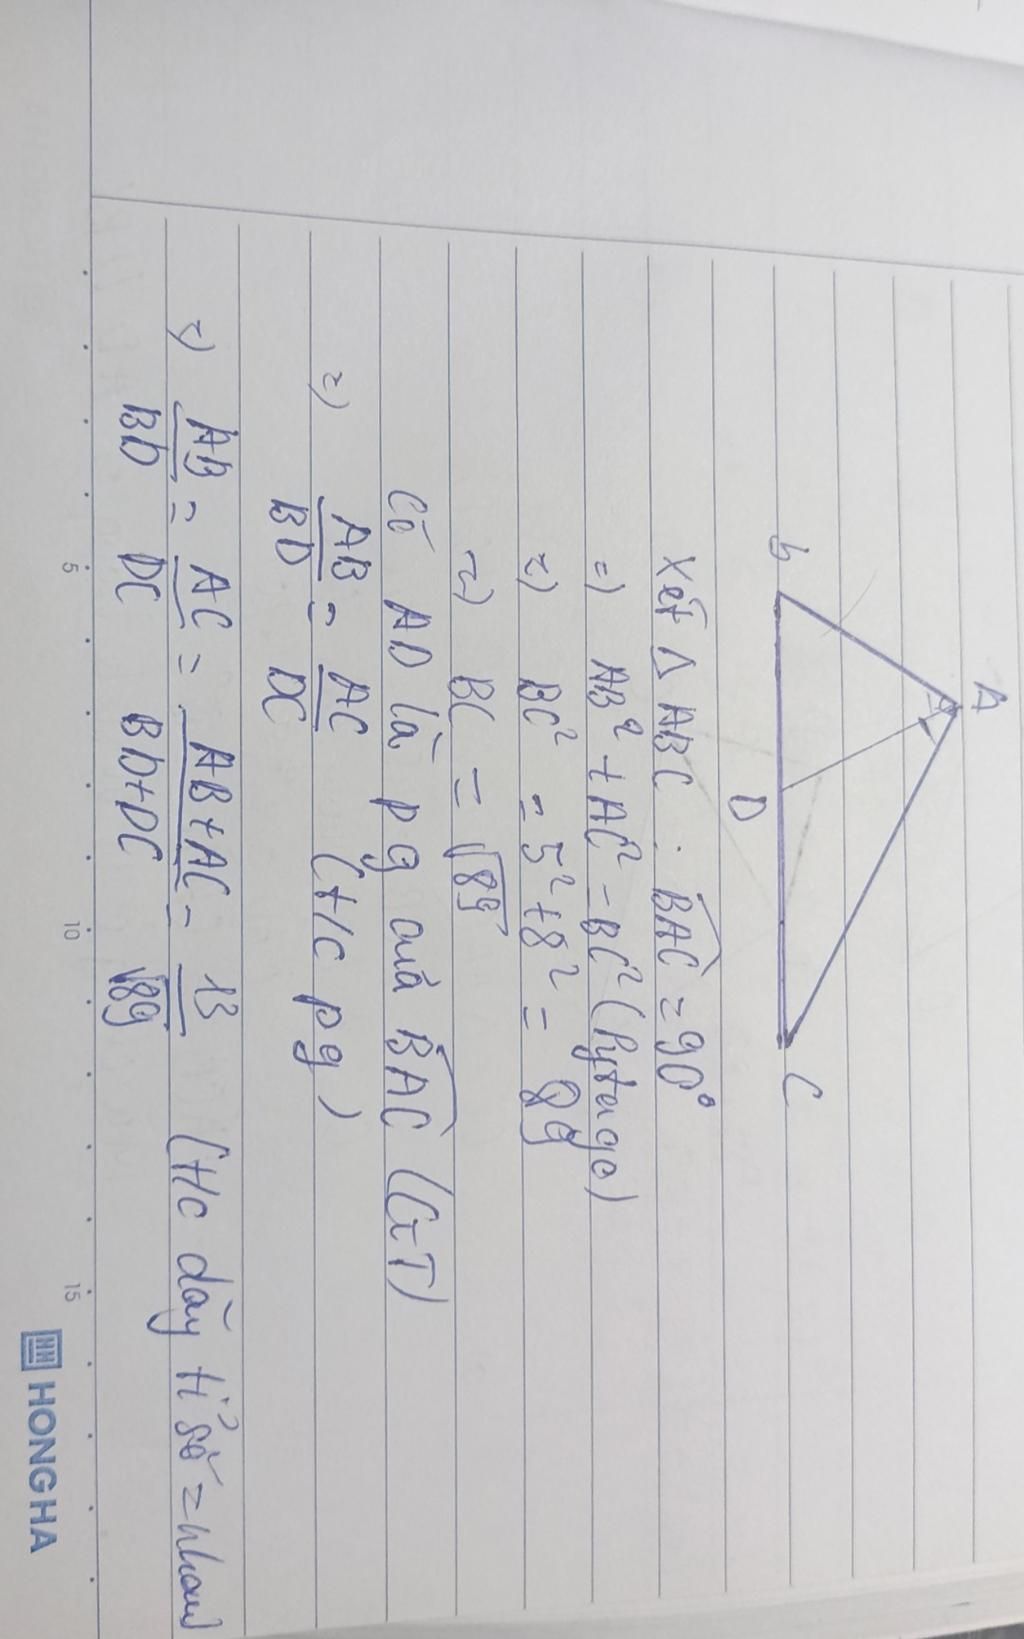 A
B
D
C
Xét Δ ABC : BAC = 90°
=) AB² + AC² = BC² (Pytago)
=) BC² = 5² + 8² = 89
=) BC = √89
Có AD là pg của BAC (GT)
=) AB/BD = AC/DC (t/c pg)
=) AB/BD = AC/DC = AB+AC/BD+DC = 13/√89 (t/c dãy tỉ số = nhau)
5 10 15
HONG HA